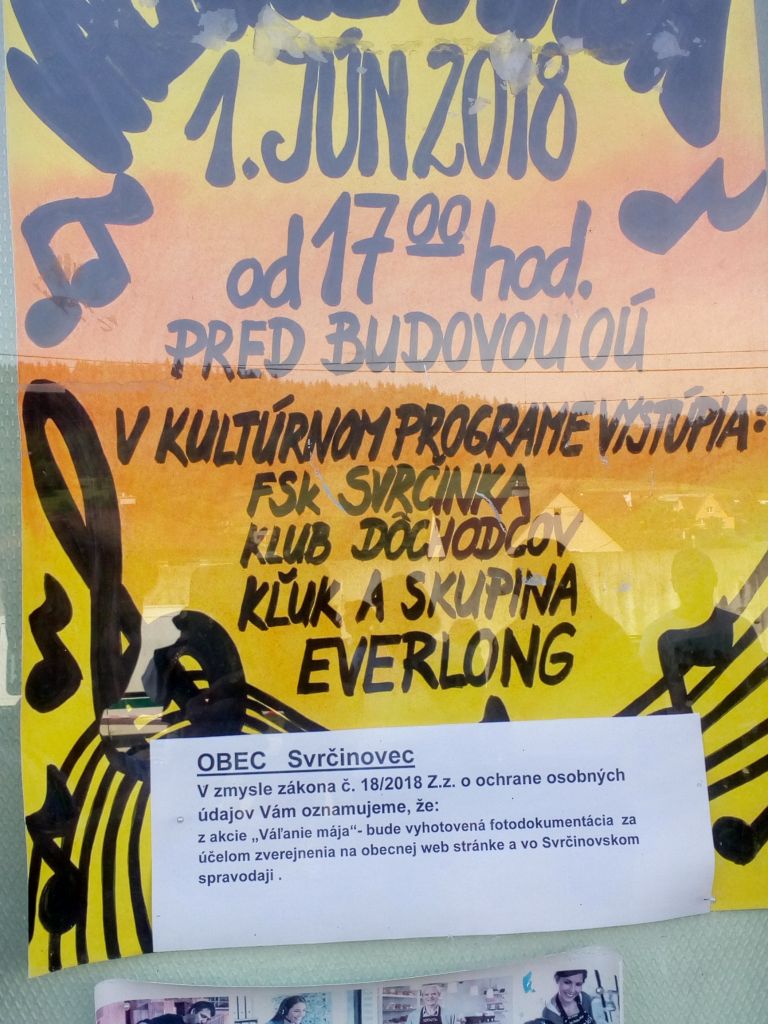 1. JÚN 2018
od 17 00 hod.
PRED BUDOVOU OÚ
V KULTÚRNOM PROGRAME VYSTÚPIA:
FSk SVRČINKA
KLUB DÔCHODCOV
KĽUK A SKUPINA
EVERLONG
OBEC Svrčinovec
V zmysle zákona č. 18/2018 Z.z. o ochrane osobných
údajov Vám oznamujeme, že:
z akcie „Váľanie mája“- bude vyhotovená fotodokumentácia za
účelom zverejnenia na obecnej web stránke a vo Svrčinovskom
spravodaji .